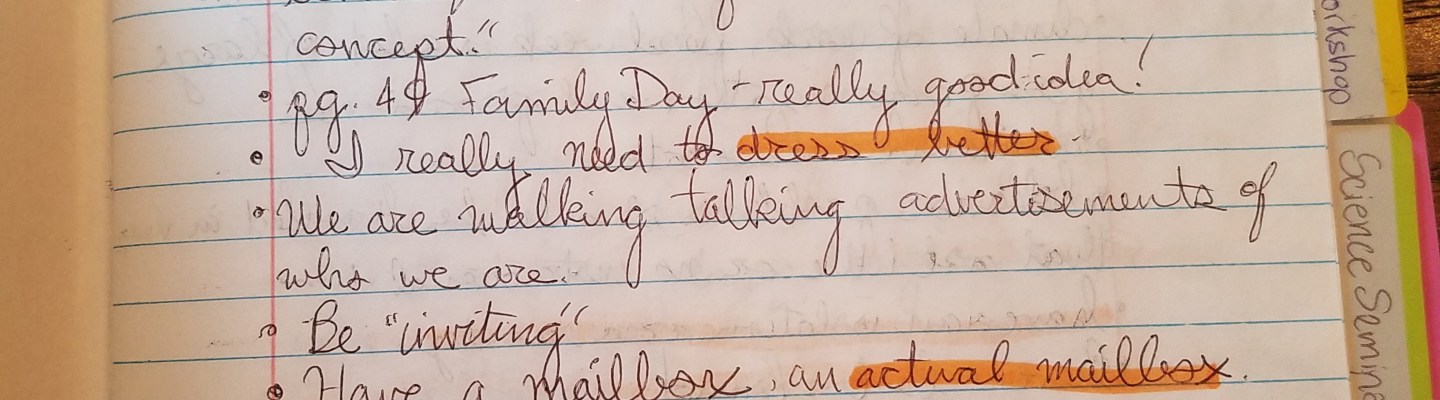 concept."
• pg. 49 Family Day - really good idea!
• I really need to dress better.
• We are walking talking advertisements of
who we are.
• Be "inviting"
• Have a mailbox, an actual mailbox.
orkshop
Science Semina